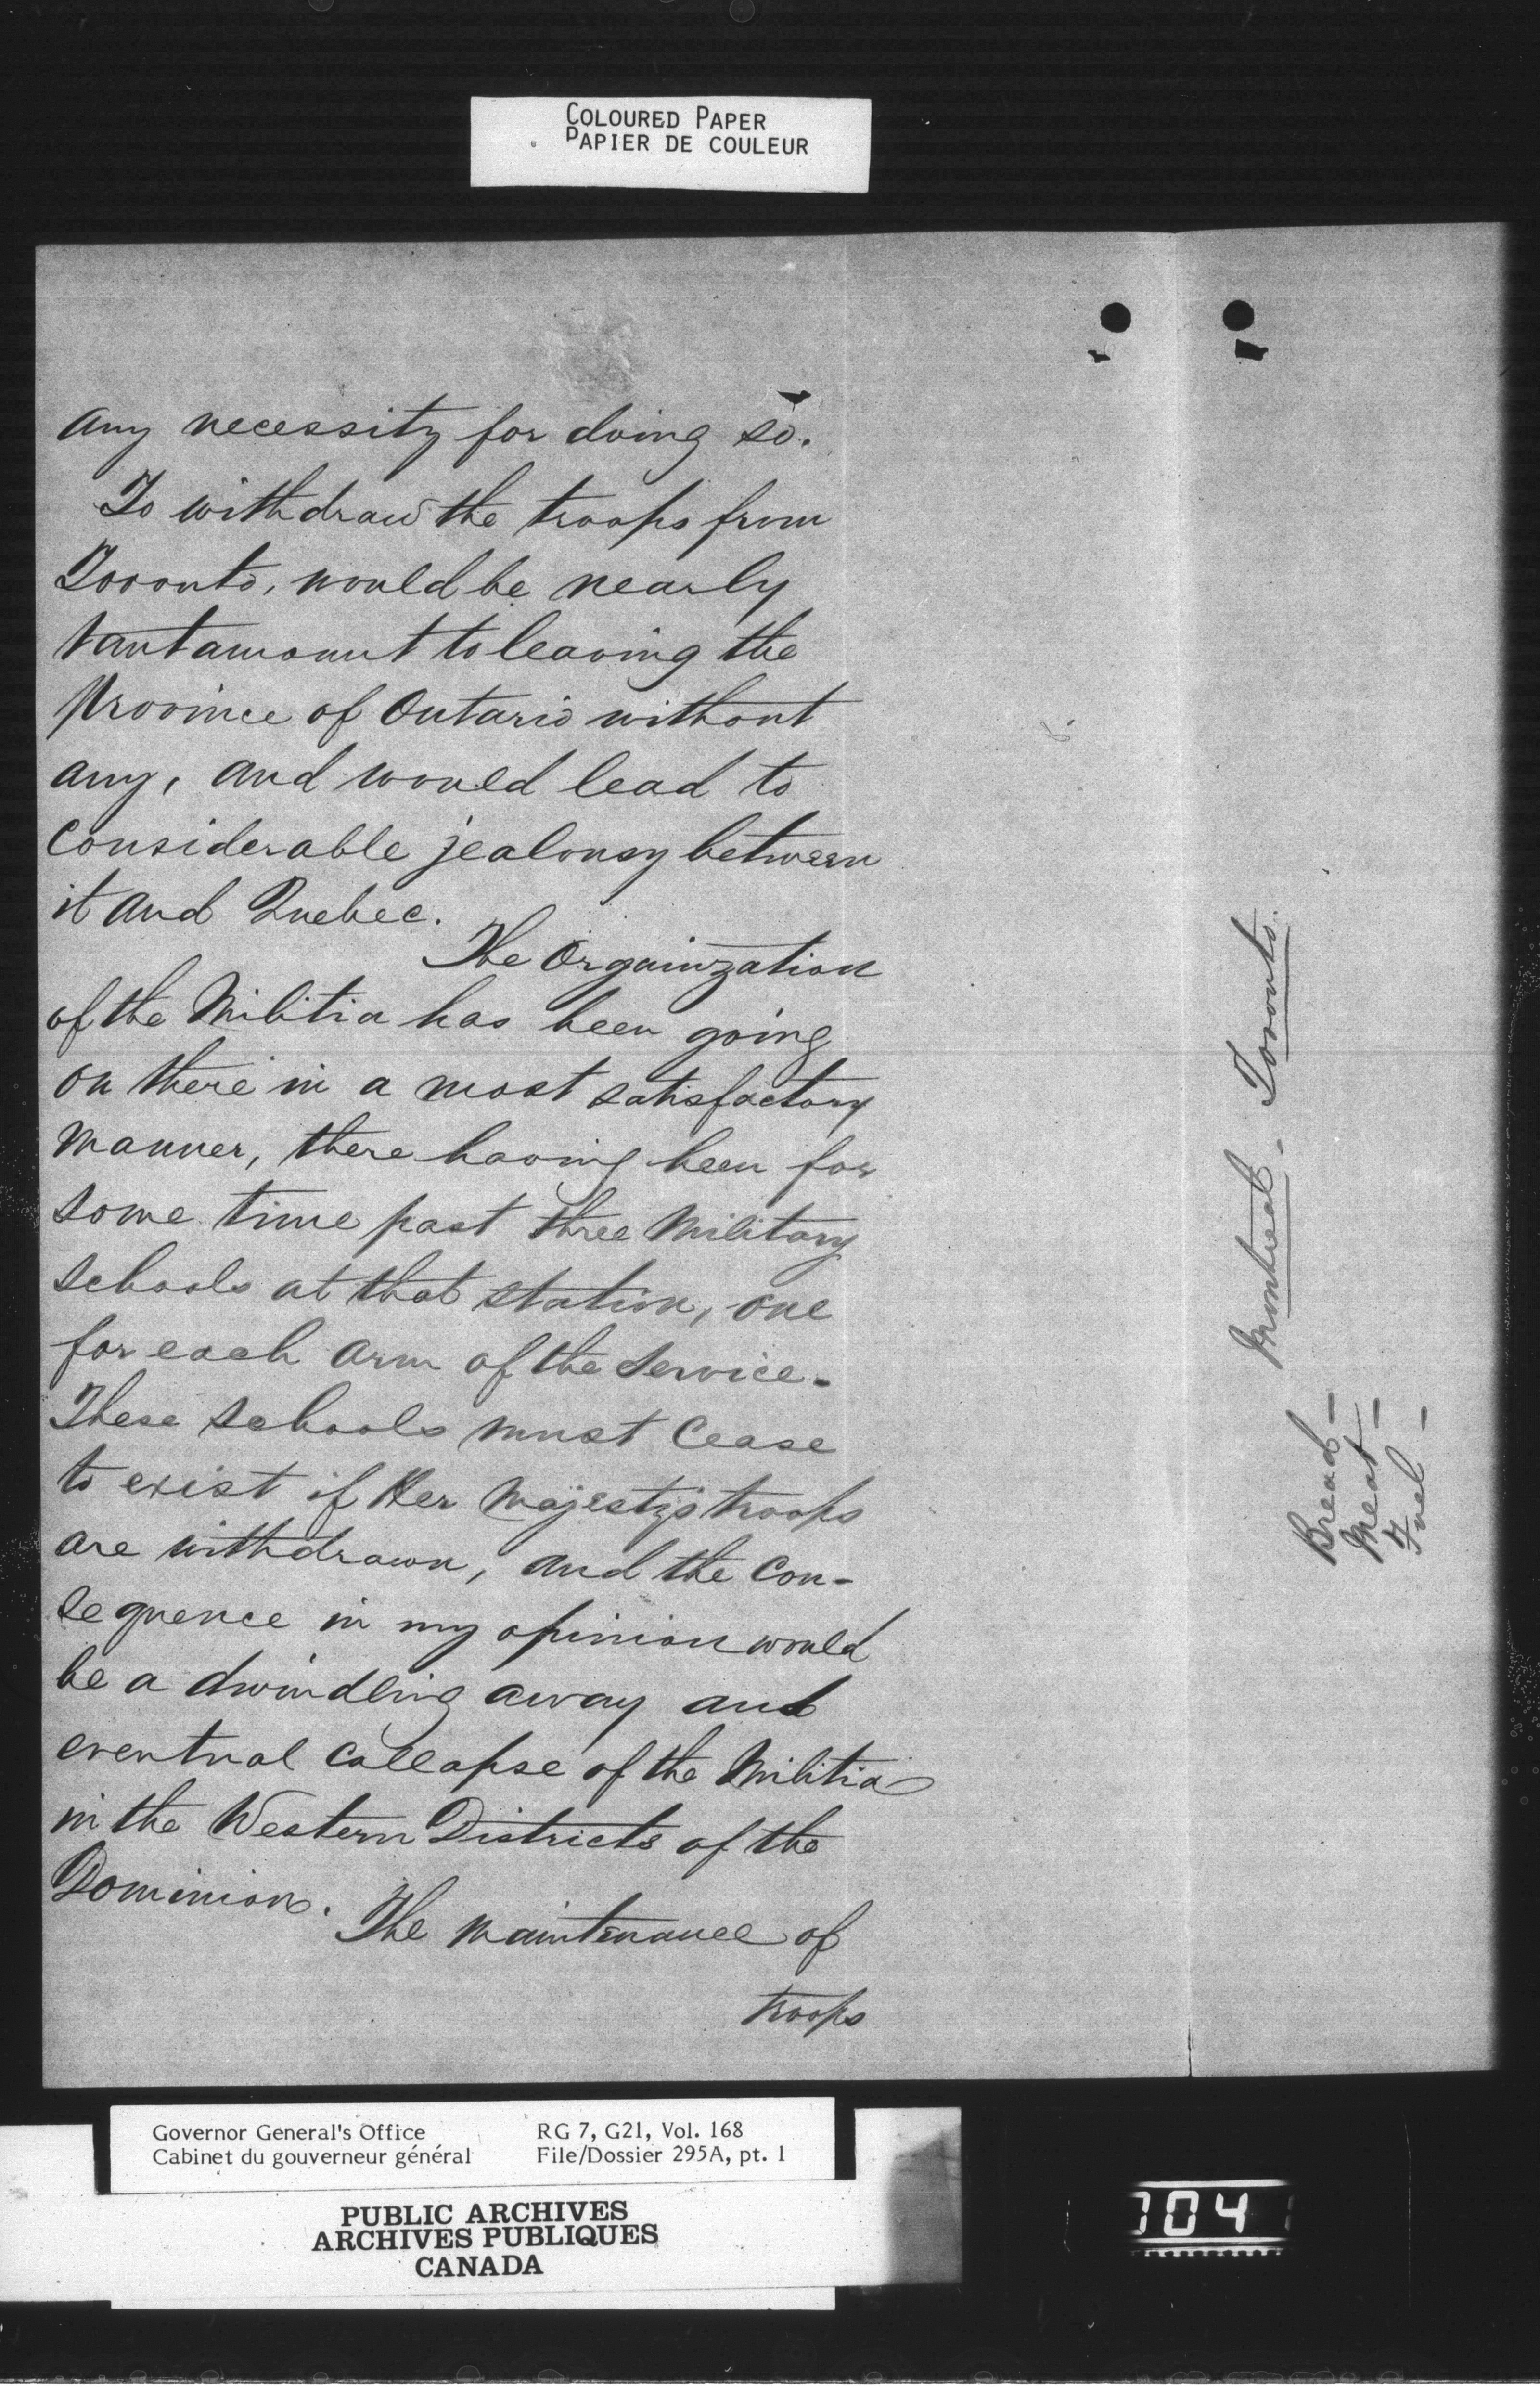 COLOURED PAPER
PAPIER DE COULEUR
any necessity for doing so.
To withdraw the troops from
Toronto, would be nearly
tantamount to leaving the
Province of Ontario without
any, and would lead to
considerable jealousy between
it and Quebec.
The Organization
of the Militia has been going
on there in a most satisfactory
manner, there having been for
some time past three Military
schools at that station, one
for each arm of the service.
These schools must cease
to exist if Her Majesty's troops
are withdrawn, and the con-
sequence in my opinion would
be a dwindling away and
eventual collapse of the Militia
in the Western Districts of the
Dominion.
The maintenance of
troops
Montreal - Toronto.
Bread -
Meat -
Fuel -
Governor General's Office
Cabinet du gouverneur général
RG 7, G21, Vol. 168
File/Dossier 295A, pt. 1
PUBLIC ARCHIVES
ARCHIVES PUBLIQUES
CANADA
104